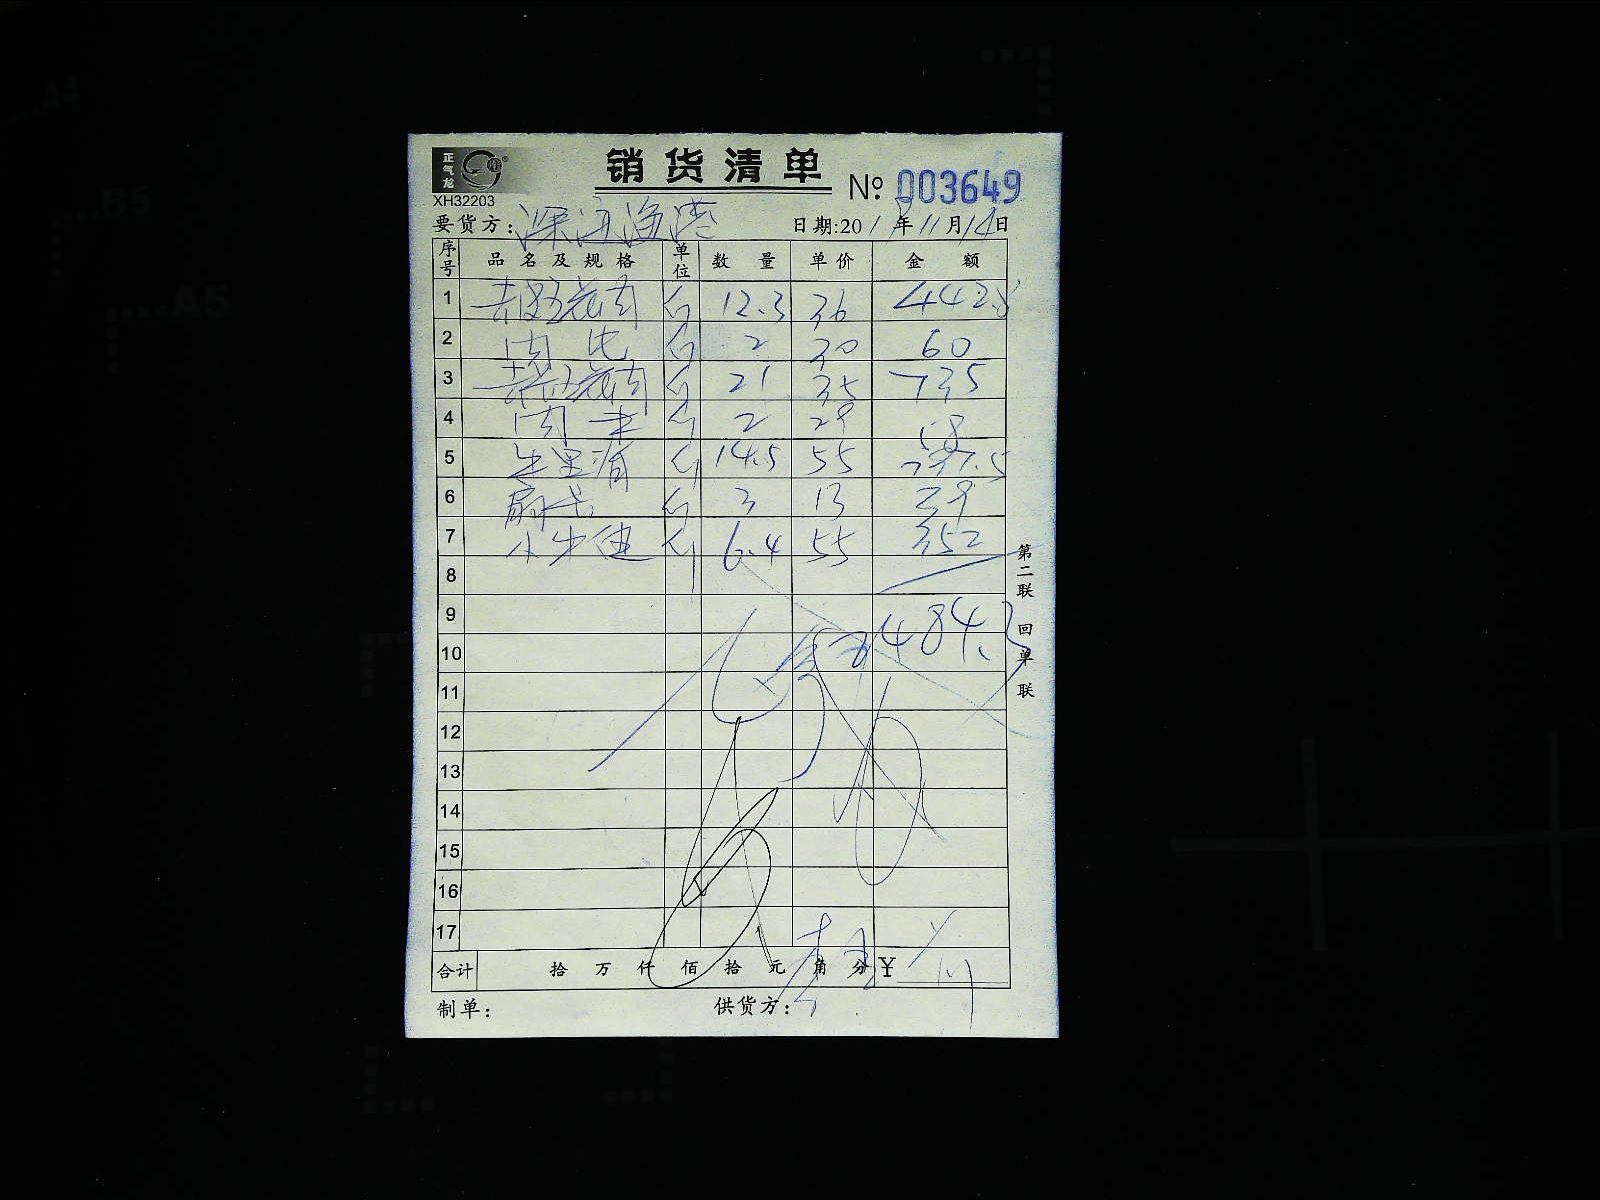 正气龙
销货清单
XH32203
№ 003649
要货方: 日期:20 年11月14日
序号 品名及规格 单位 数量 单价 金额
1 五花肉 斤 12.3 36 442.8
2 肉 斤 2 30 60
3 五花肉 斤 21 35 735
4 肉 斤 2 29 58
5 牛里脊 斤 14.5 55 797.5
6 扇骨 斤 3 13 39
7 小牛 斤 6.4 55 352
8
9
2484.3
10
11
12
13
14
15
16
17
合计 拾 万 仟 佰 拾 元 角 分 ¥
制单: 供货方:
第二联 回单联